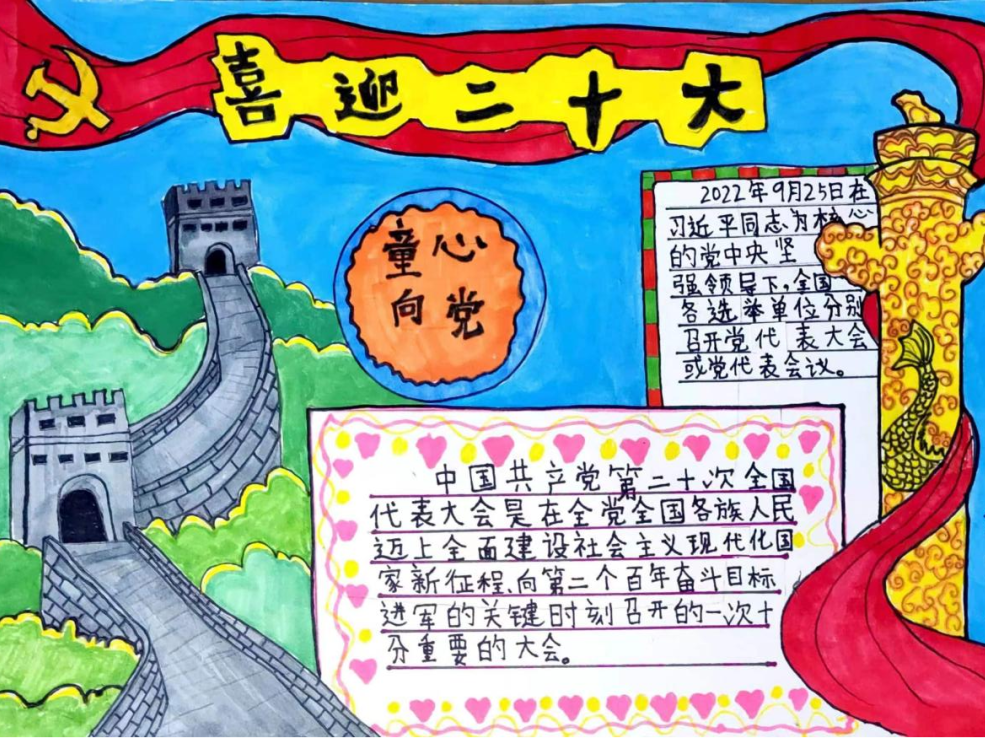 喜迎二十大
童心
向党
2022年9月25日在
习近平同志为核心
的党中央坚
强领导下,全国
各选举单位分别
召开党代表大会
或党代表会议。
中国共产党第二十次全国
代表大会是在全党全国各族人民
迈上全面建设社会主义现代化国
家新征程、向第二个百年奋斗目标
进军的关键时刻召开的一次十
分重要的大会。